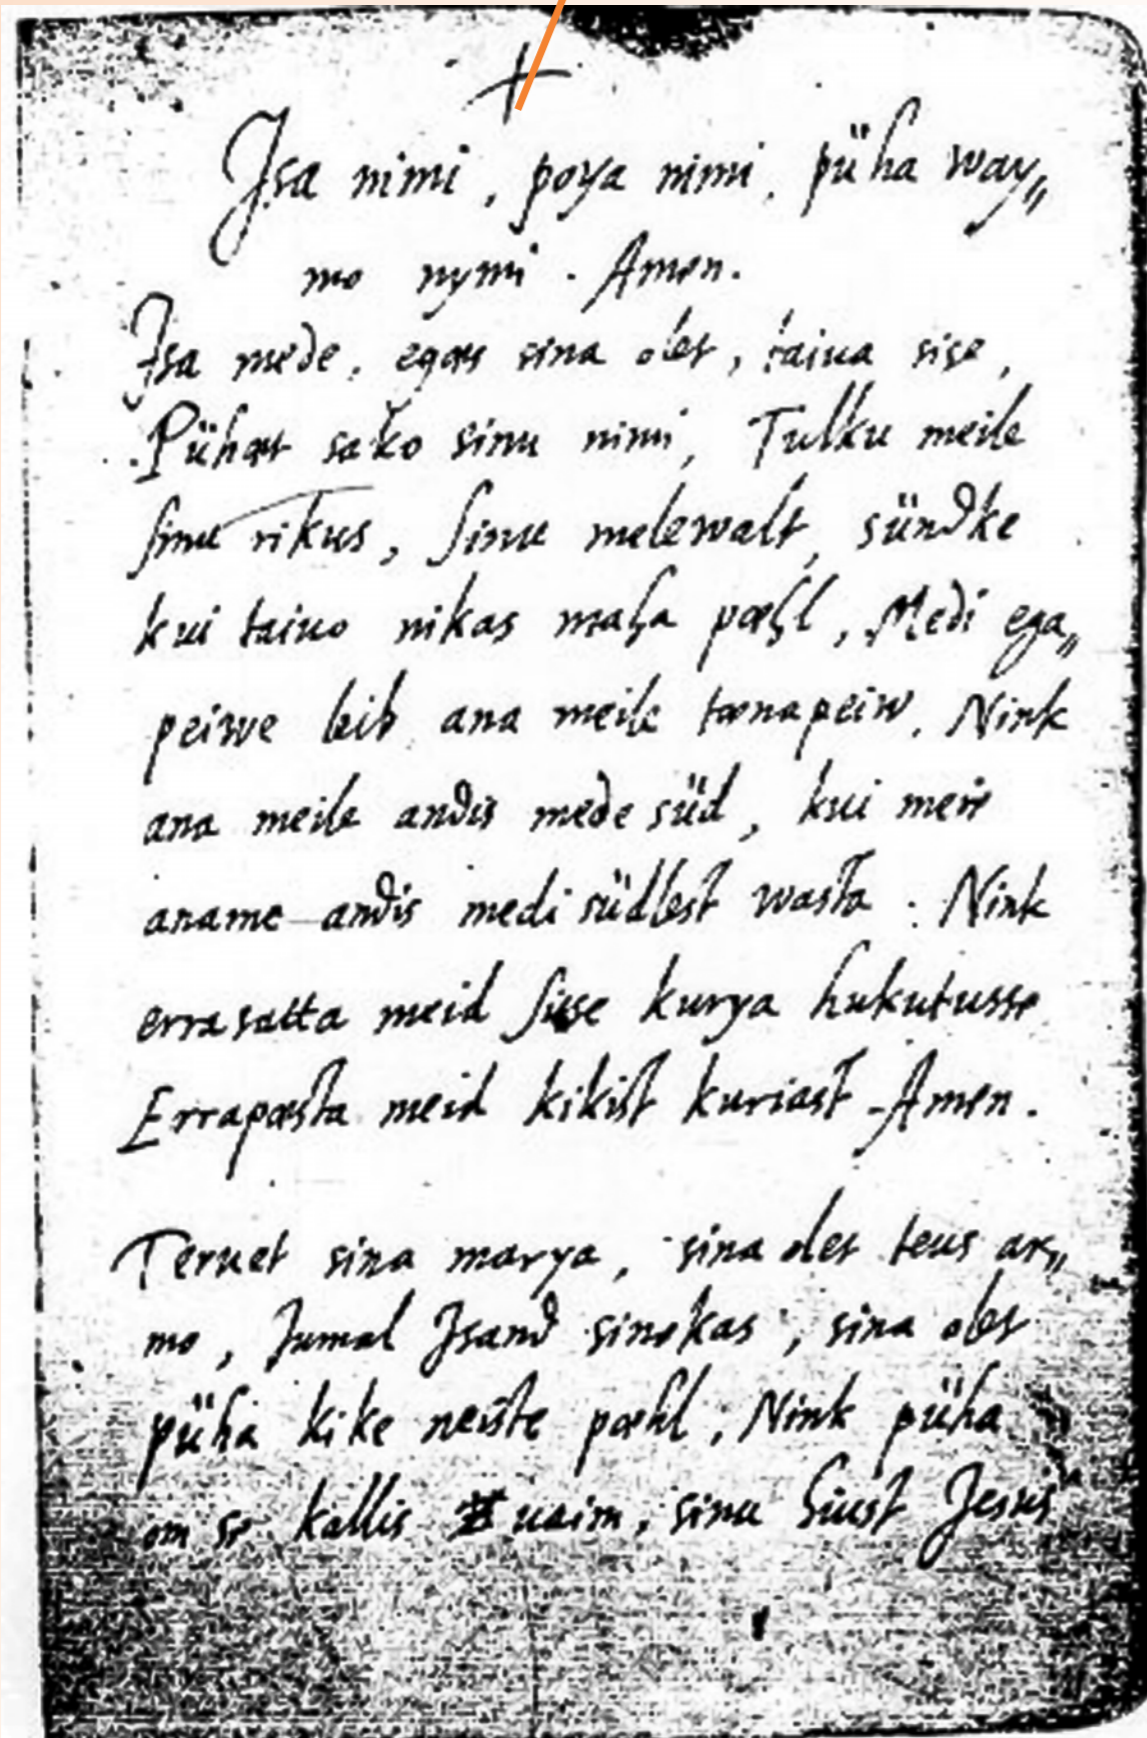 Jsa nimi, poya nimi, püha way„
mo nymi. Amen.
Jsa mede, egas sina olet, taiua sise,
Pühat sako sinu nimi, Tulku meile
sinu rikus, sinu melewalt, sündke
kui taiuo nikas maha pæhl, Medi ega„
peiwe leib ana meile tænapeiw. Nink
ana meile andis mede süd, kui meie
aname andis medi südlest wasta. Nink
errasatta meid sisse kurya hukutusse
Errapæsta meid kikist kuriast Amen.
Teruet sina marya, sina olet teus ar„
mo, Jumal Jsand sinokas, sina olet
püha kike neiste pæhl, Nink püha
om se kallis uaim, sinu Jesus